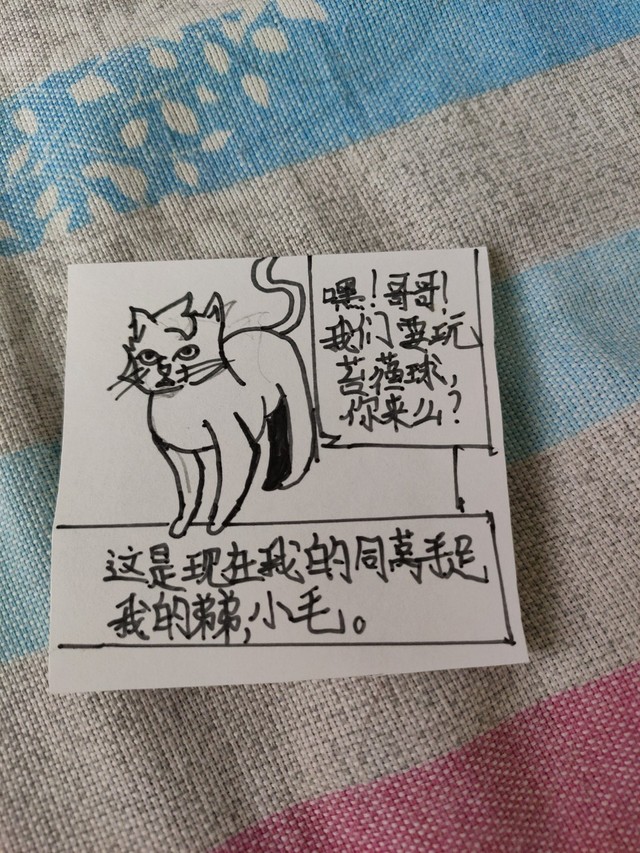 嘿！哥哥！
我们要玩
苔藓球，
你来么？
这是现在我的同莴手足
我的弟弟，小毛。